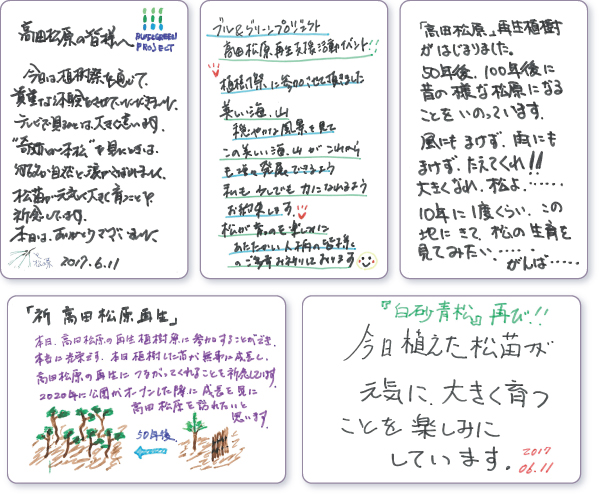 高田松原の皆様へ
BLUE&GREEN
PROJECT
今日は植樹祭を通じて、
貴重な体験をさせていただきました。
テレビで見るのとは、大きく違います。
"奇跡の一本松"を見たときは、
何故か自然と涙がこぼれました。
松苗が元気で大きく育つことを
祈念しています。
本日は、ありがとうございました。
2017.6.11
ブルー&グリーンプロジェクト
高田松原再生支援活動イベント!!
植樹祭に参加させて頂きました
美しい海、山
穏やかな風景を見て
この美しい海、山がこれから
も増々発展できるよう
私も少しでも力になれるよう
お約束します。
松が育つのを楽しみに
あたたかい人柄の皆様と
のご多幸お祈りしております
「高田松原」再生植樹
がはじまりました。
50年後、100年後に
昔の様な松原になる
ことをいのっています。
風にもまけず、雨にも
まけず、たえてくれ!!
大きくなれ、松よ.……
10年に1度くらい、この
地にきて、松の生育を
見てみたい.……
がんば……
「祈 高田松原再生」
本日、高田松原の再生植樹祭に参加することができ、
本当に光栄です。本日植樹した苗が無事に成長し、
高田松原の再生につながってくれることを祈念しています。
2020年に公園がオープンした際に成長を見に
高田松原を訪れたいと
思います。
50年後
『白砂青松』再び!!
今日植えた松苗が
元気に、大きく育つ
ことを楽しみに
しています。
2017
06.11